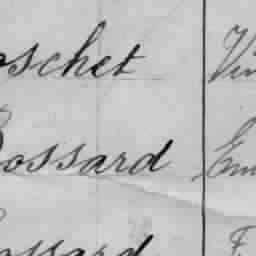 oschet Vin
Bossard Em
ossard F